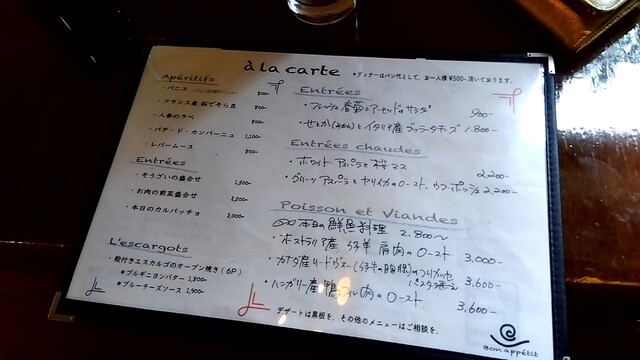 à la carte
*ディナーはパン代として、お一人様¥500-頂いております。
Apéritifs
・パニス 800-
・フランス産 茹でそら豆 800-
・人参のラペ 800-
・パテ・ド・カンパーニュ 1,100-
・レバームース 800-
Entrées
・そうざいの盛合せ 1,500-
・お肉の前菜盛合せ 2,500-
・本日のカルパッチョ 2,000-
L'escargots
・殻付きエスカルゴのオーブン焼き(6P)
*ブルギニヨンバター 1,800-
*ブルーチーズソース 1,900-
Entrées
・フレッシュ春菊とアーモンドのサラダ 900-
・せとか(みかん)とイタリア産ブッラータチーズ 1.800-
Entrées chaudes
・ホワイトアスパラと桜マス 2,200-
・グリーンアスパラとヤリイカのロースト、ウフ・ポッシェ 2,200-
Poisson et Viandes
本日の鮮魚料理 2.800~
・オーストラリア産 仔羊 肩肉のロースト 3,000-
・カナダ産リードヴォー(仔牛の胸腺)のフリカッセ
パスタ添え 3,600-
・ハンガリー産 鴨フィレ肉のロースト 3,600-
デザートは黒板を、その他のメニューはご相談を。
Bon appétit